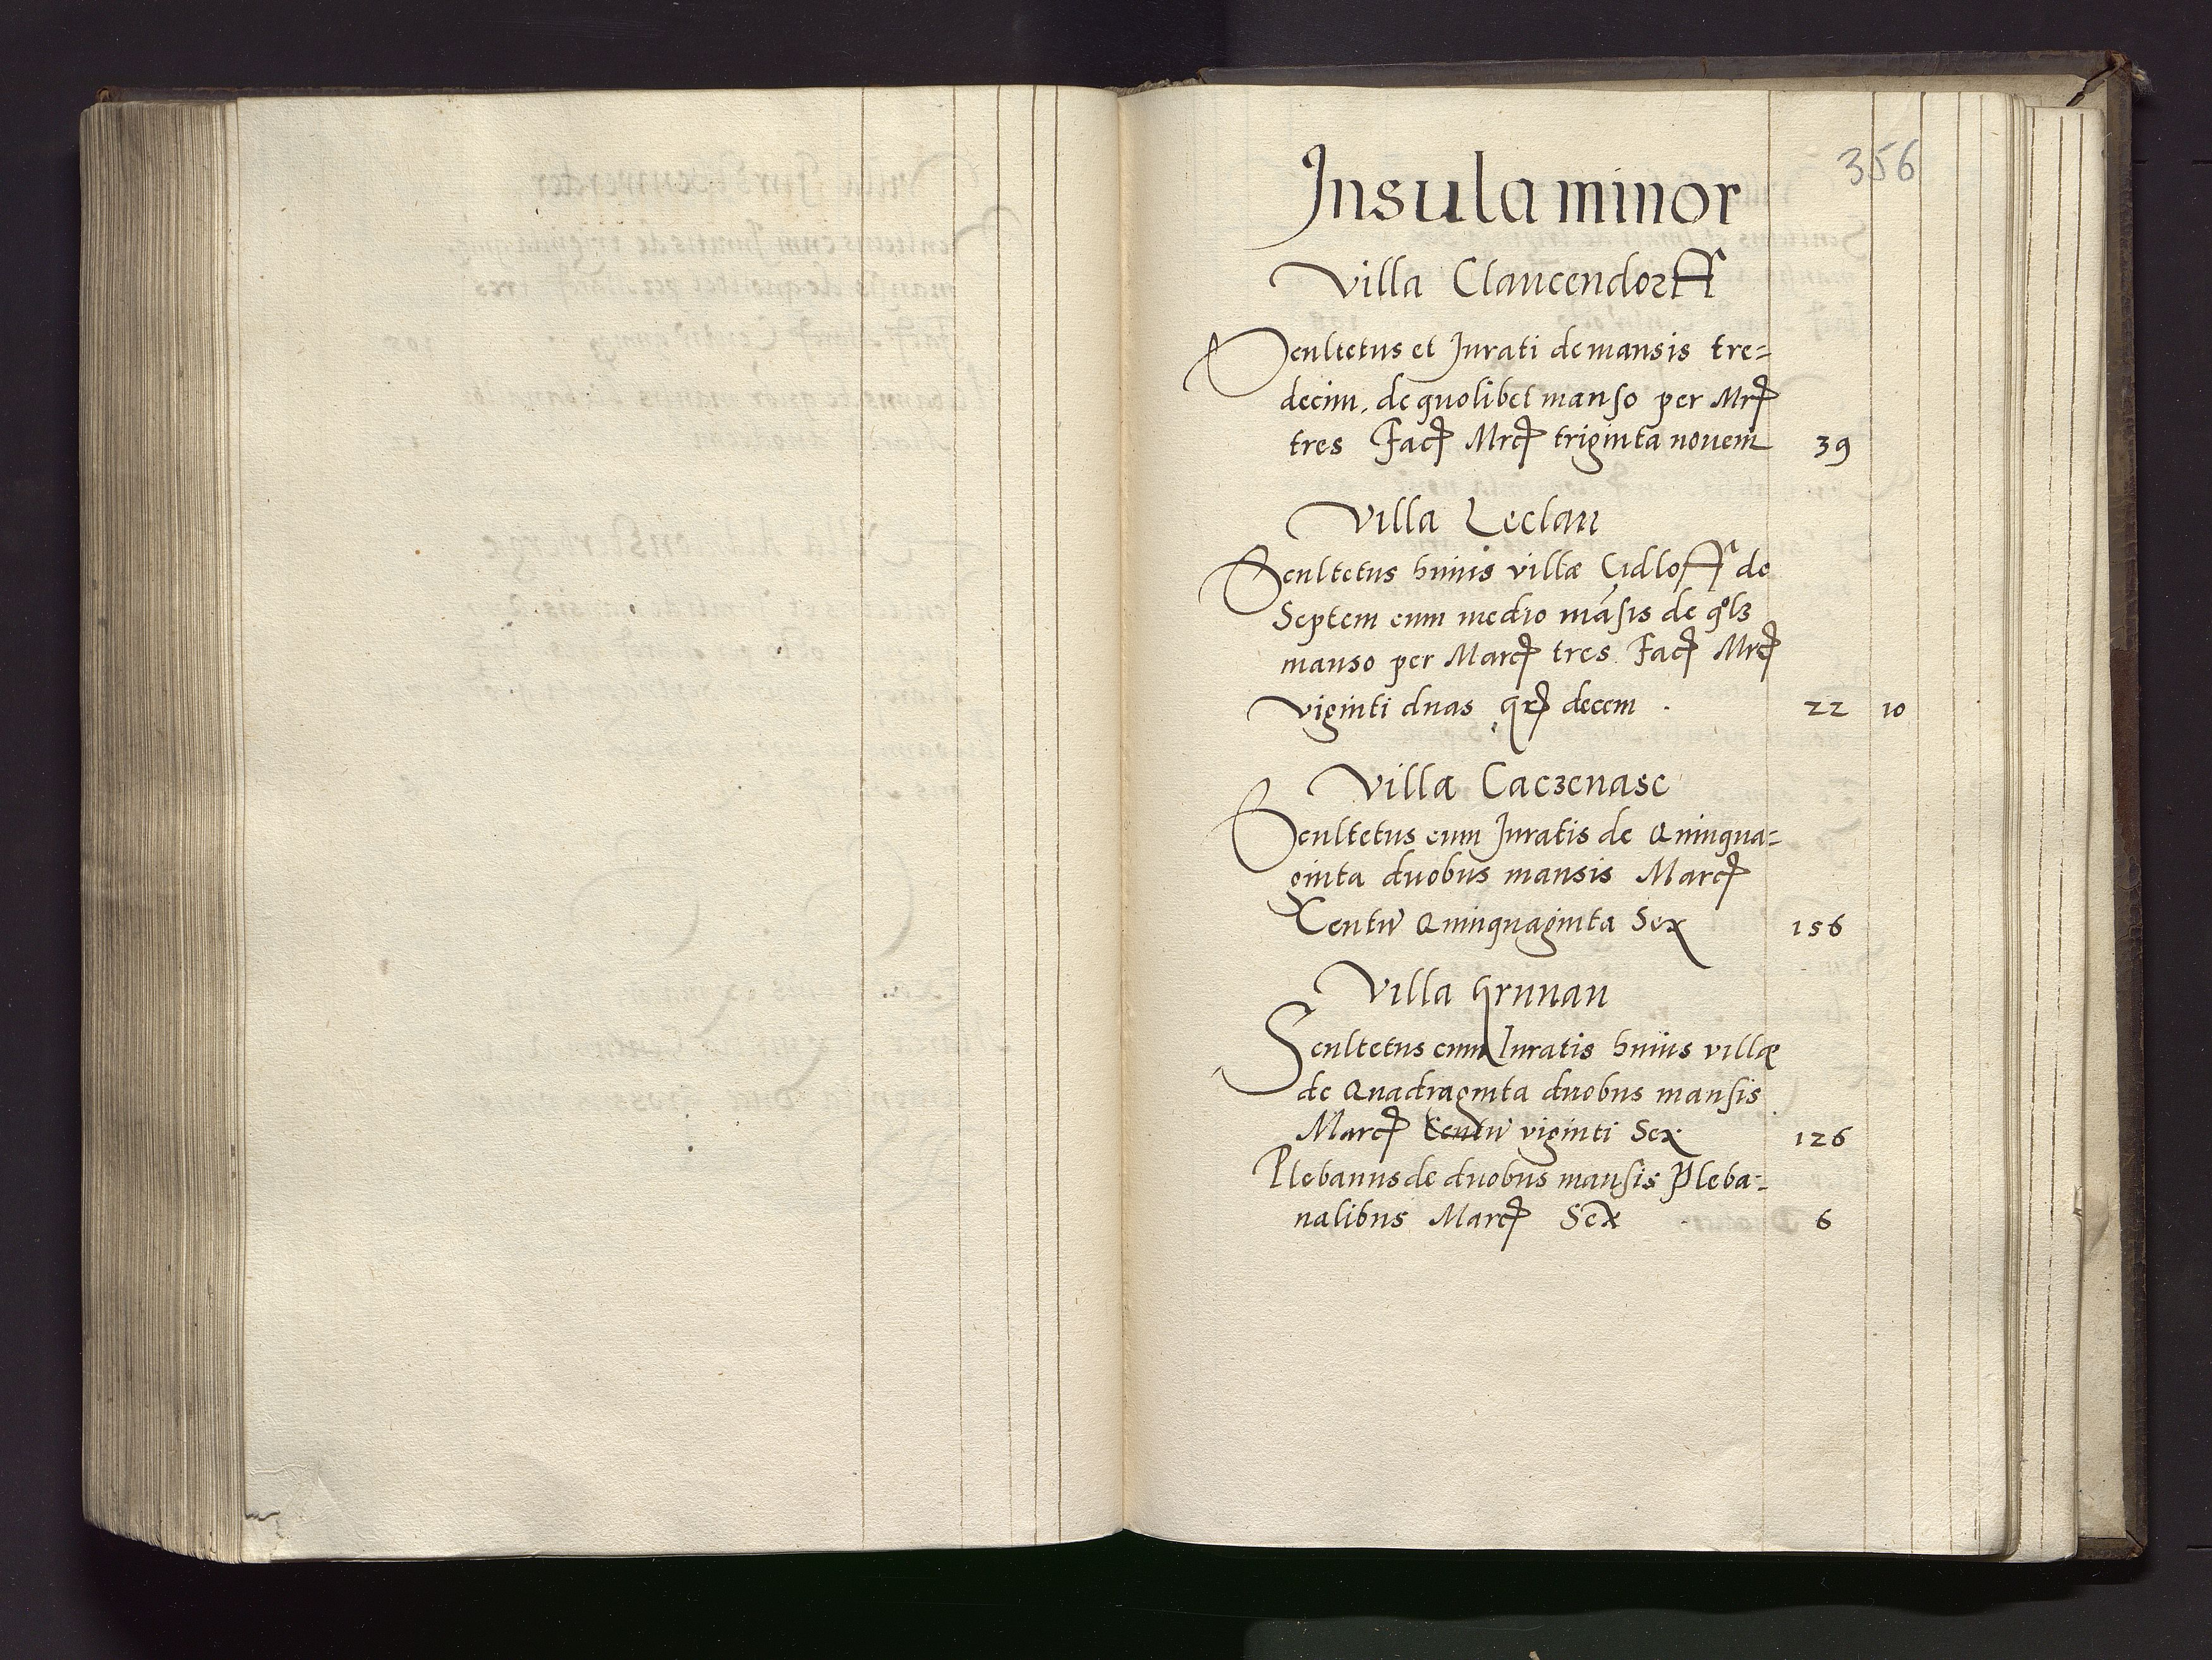 356
Insula minor
Villa Clancendorff
Scultetus et Jurati de mansis tre=
decim, de quolibet manso per Mrc
tres Fac Mrc triginta novem 39
Villa Leclau
Scultetus huius villæ Cidloff de
Septem cum medio māsis de qolꝫ
manso per Marc tres. Fac Mrc
viginti duas gr decem . 22 10
Villa Caczenasc
Scultetus cum Juratis de Quinqua=
ginta duobus mansis Marc
Centū Quinquaginta Sex 156
Villa Grunau
Scultetus cum Iuratis huius villæ
de Quadraginta duobus mansis
Marc Centū viginti Sex 126
Plebanus de duobus mansis Pleba-
nalibus Marc Sex 6